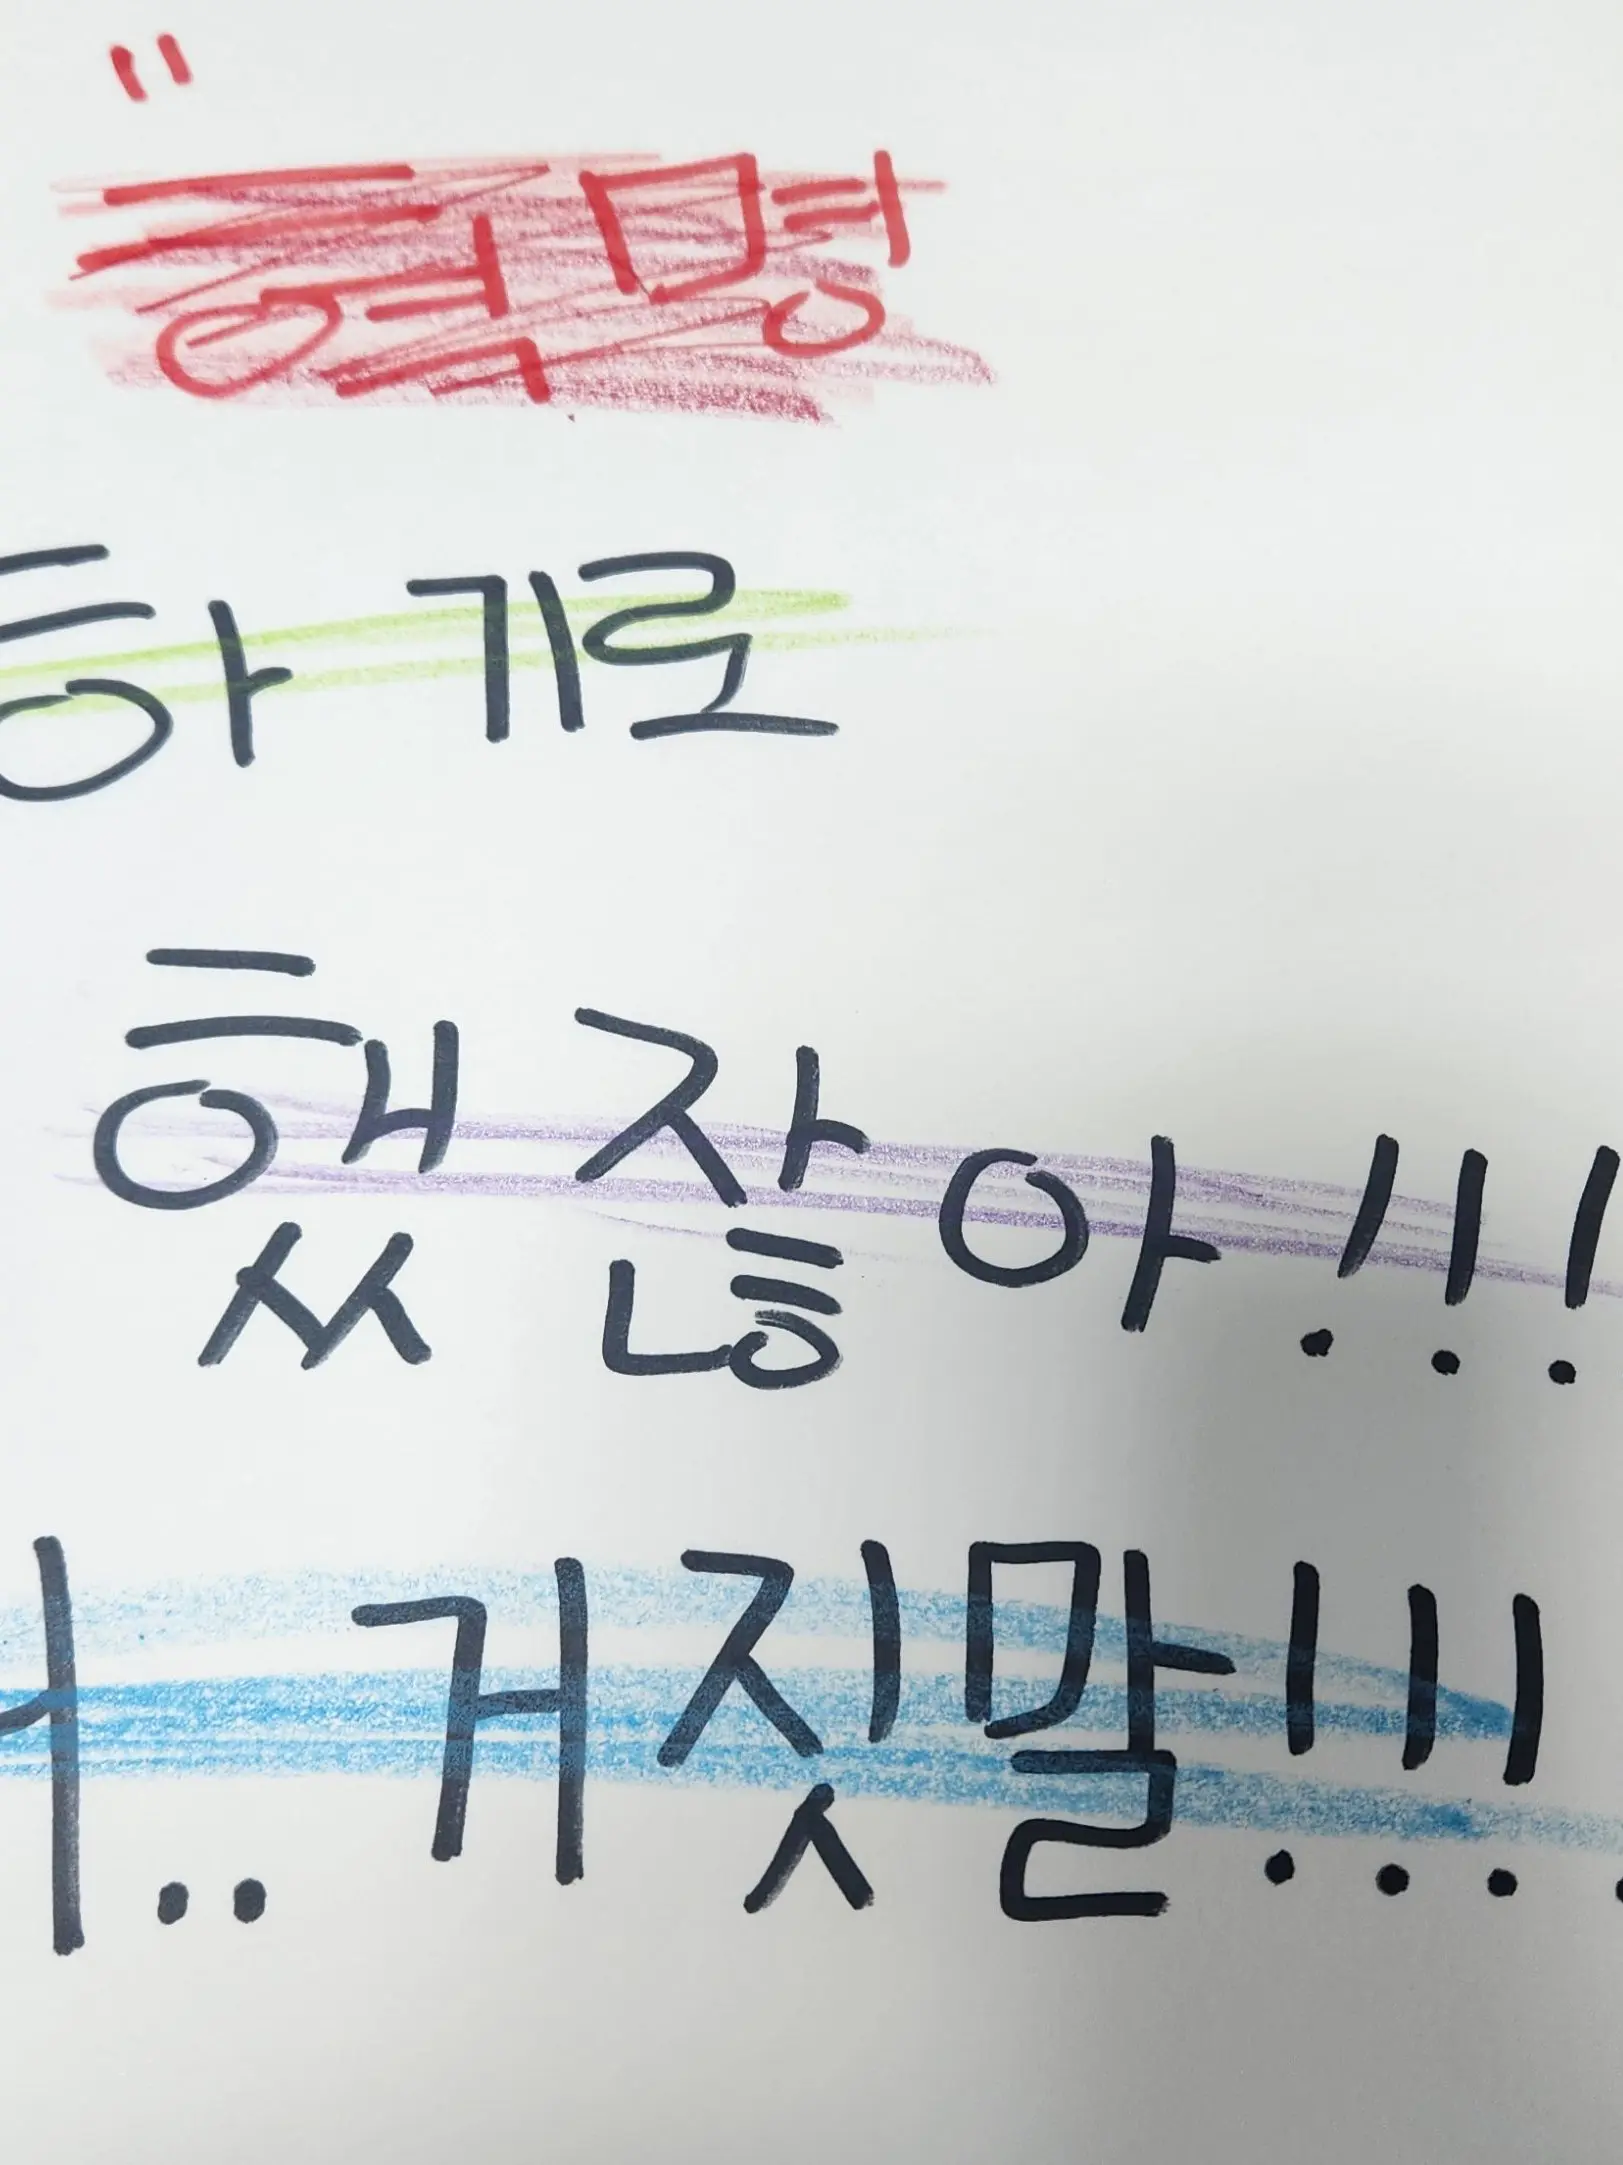 "
혁명
하기로
했잖아!!!
ㅓ.. 거짓말!!!